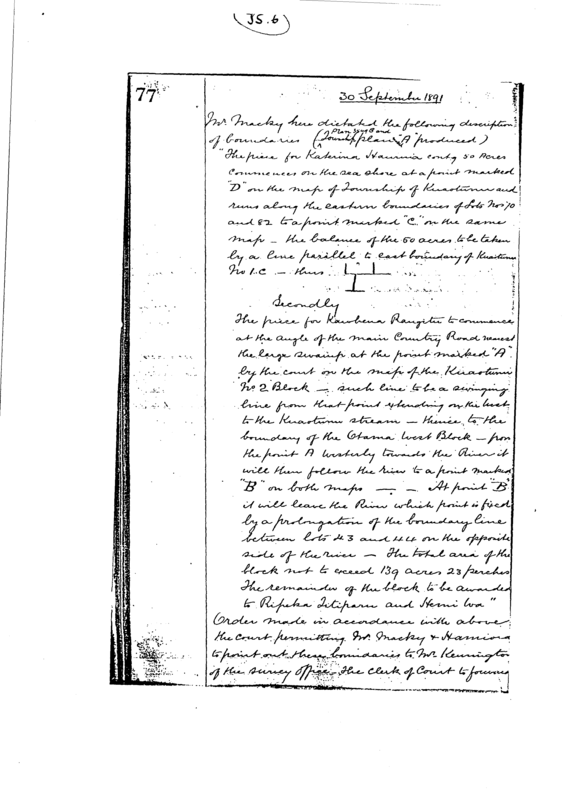 (JS.6)
77
30 September 1891
Mr. Macky here dictated the following description
of boundaries (Township plan "A" produced)
Plan and
"The piece for Katerina Hauruia contg 50 acres
commences on the sea shore at a point marked
"D" on the map of Township of Kuaotunu and
runs along the eastern boundaries of Lots Nos 70
and 82 to a point marked "C" on the same
map – the balance of the 50 acres to be taken
by a line parallel to east boundary of Kuaotunu
No 1.C – thus
Secondly
The piece for Rangitu to commence
at the angle of the main Country Road nearest
the large swamp at the point marked "A"
by the court on the map of the Kuaotunu
No 2 Block – such line to be a swinging
line from that point extending on the west
to the Kuaotunu stream – thence to the
boundary of the Otama West Block – from
the point A westerly towards the River it
will then follow the river to a point marked
"B" on both maps – – At point "B"
it will leave the River which point is fixed
by a prolongation of the boundary line
between lots 43 and 44 on the opposite
side of the river – The total area of the
block not to exceed 139 acres 23 perches
The remainder of the block to be awarded
to Ripeka and Hemi"
Order made in accordance with above
the court permitting Mr. Macky &
to point out these boundaries to Mr. Kennington
of the survey Office – The Clerk of Court to